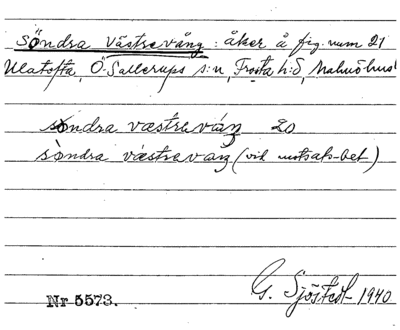 Söndra Västrevång : åker å fig. num 21
Ulatofta, Ö. Sallerups s:n, Frosta h:d, Malmöhus l.
söndra væstrevåŋ 20
sòndra væstrevåŋ (vid motsats-bet)
G. Sjöstedt 1940
Nr 5573.